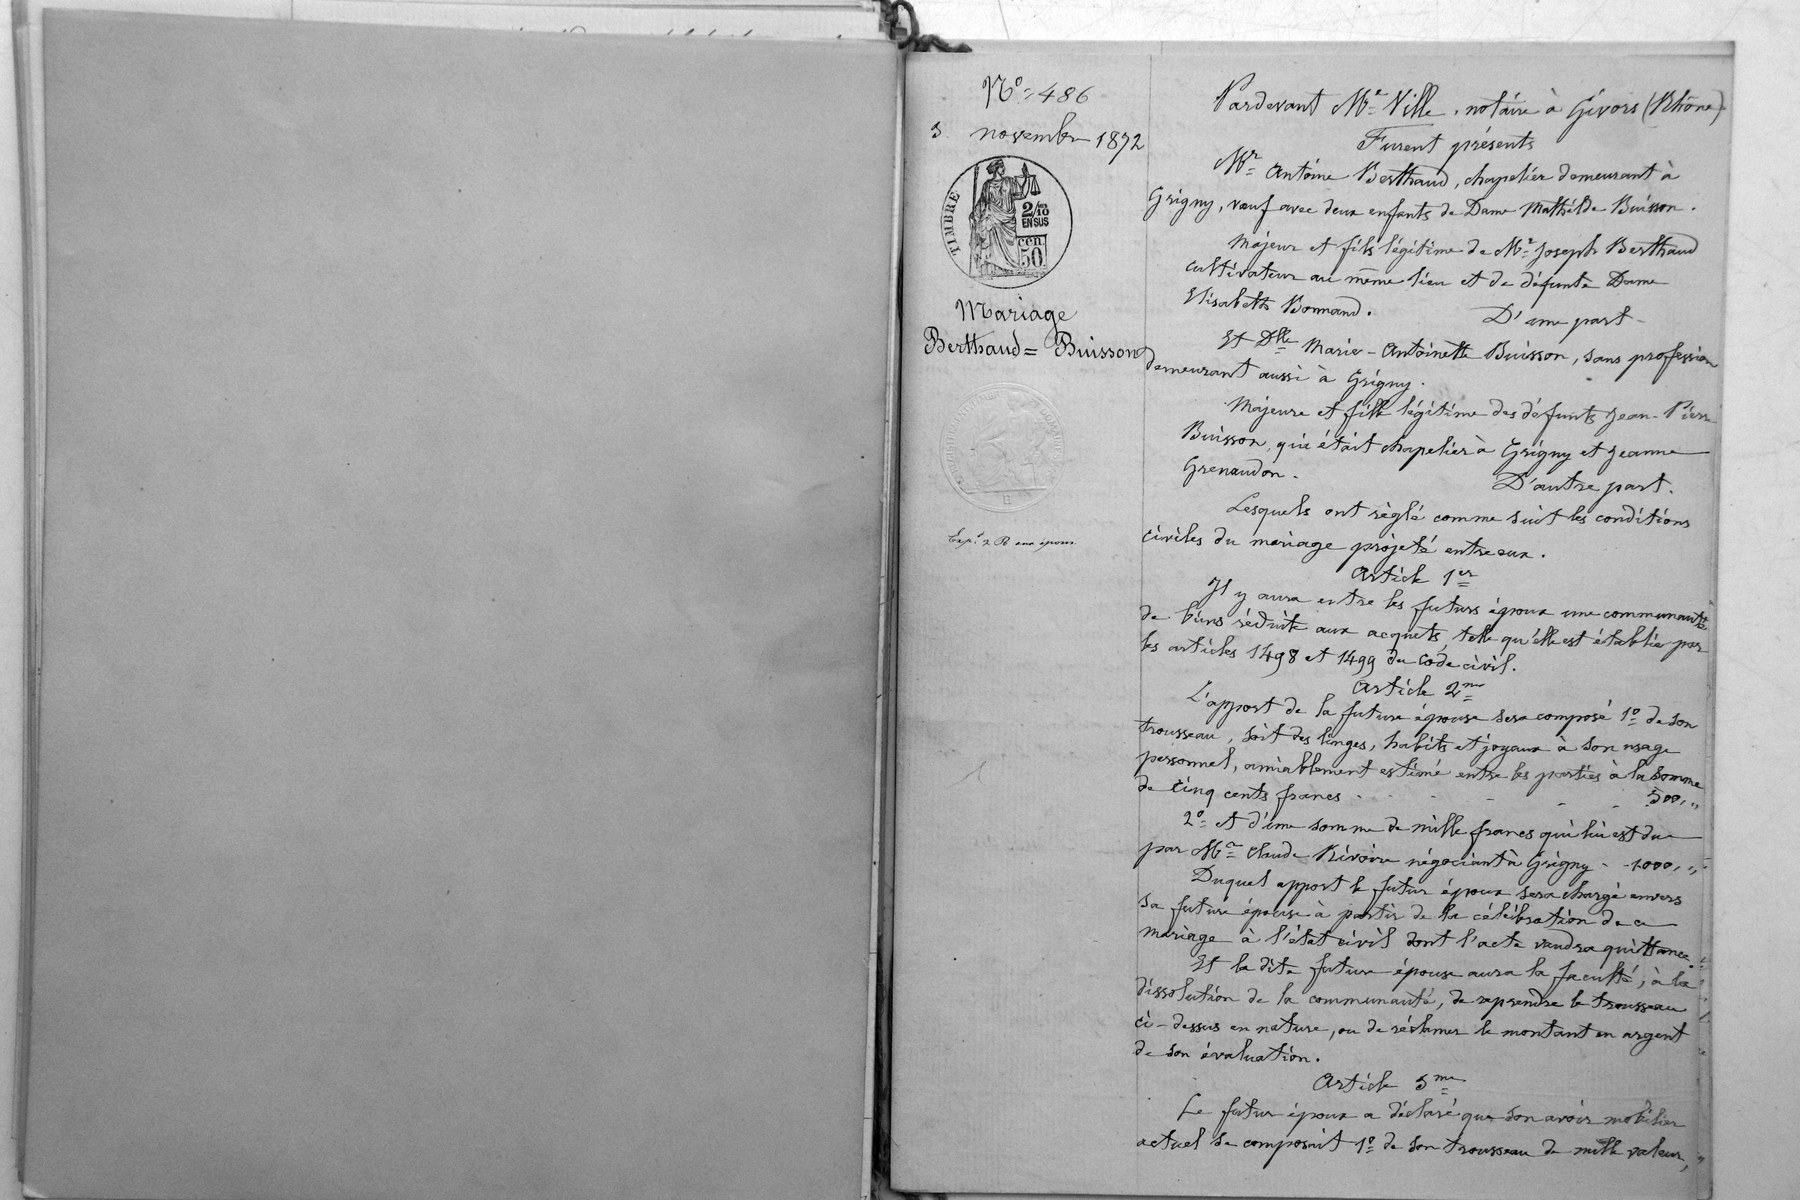 N° = 486
3 novembre 1872
TIMBRE
2/10
EN SUS
cen.
50
Mariage
Berthaud = Buisson
Pardevant Me Ville, notaire à Givors (Rhône).
Furent présents
Mr Antoine Berthaud, chapelier demeurant à
Grigny, veuf avec deux enfants de Dame Mathilde Buisson.
Majeur et fils légitime de Mr Joseph Berthaud
cultivateur au même lieu et de défunte Dame
Elisabeth Bonnand. D'une part -
Et Dlle Marie-Antoinette Buisson, sans profession
demeurant aussi à Grigny.
Majeure et fille légitime des défunts Jean-Pierre
Buisson, qui était chapelier à Grigny et Jeanne
Grenaudon. D'autre part.
Lesquels ont règlé comme suit les conditions
civiles du mariage projeté entre eux.
Article 1er
Il y aura entre les futurs époux une communauté
de biens réduite aux acquets, telle qu'elle est établie par
les articles 1498 et 1499 du code civil.
Article 2me
L'apport de la future épouse sera composé 1° de son
trousseau, soit des linges, habits et joyaux à son usage
personnel, amiablement estimé entre les parties à la somme
de cinq cents francs - - - - - 500,"
2° et d'une somme de mille francs qui lui est due
par Mr Claude Rivoire négociant à Grigny - - 1000,"
Duquel apport le futur époux sera chargé envers
sa future épouse à partir de la célébration de ce
mariage à l'état civil dont l'acte vaudra quittance.
Et la dite future épouse aura la faculté, à la
dissolution de la communauté, de reprendre le trousseau
ci-dessus en nature, ou de réclamer le montant en argent
de son évaluation.
Article 3me
Le futur époux a déclaré que son avoir mobilier
actuel se composait 1° de son trousseau de mille valeur,